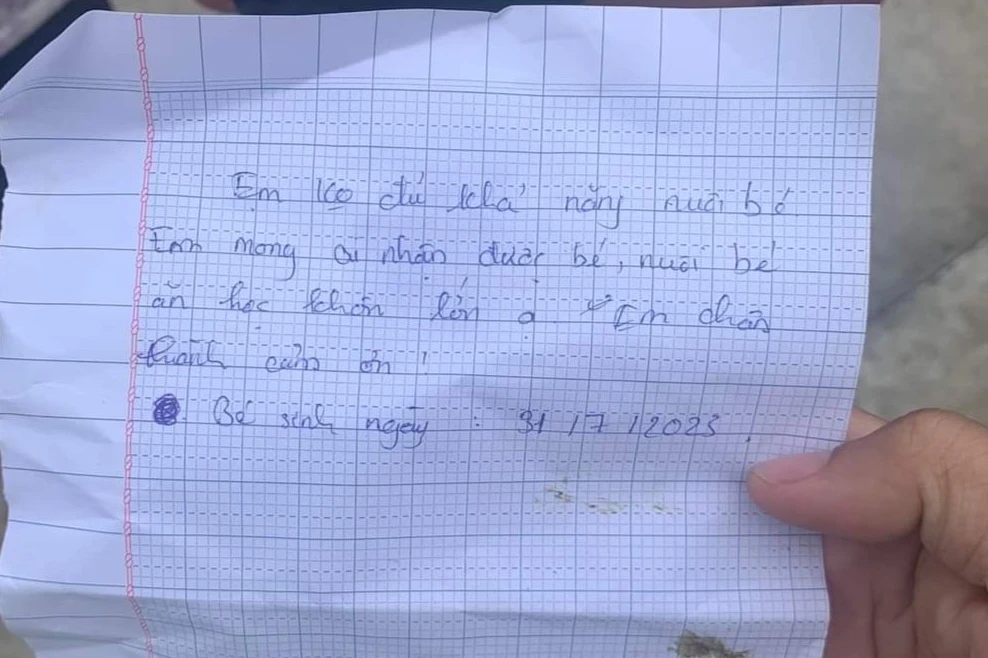 Em ko đủ khả năng nuôi bé
Em mong ai nhận được bé, nuôi bé
ăn học khôn lớn ạ Em chân
thành cảm ơn !
Bé sinh ngày : 31/7/2023.